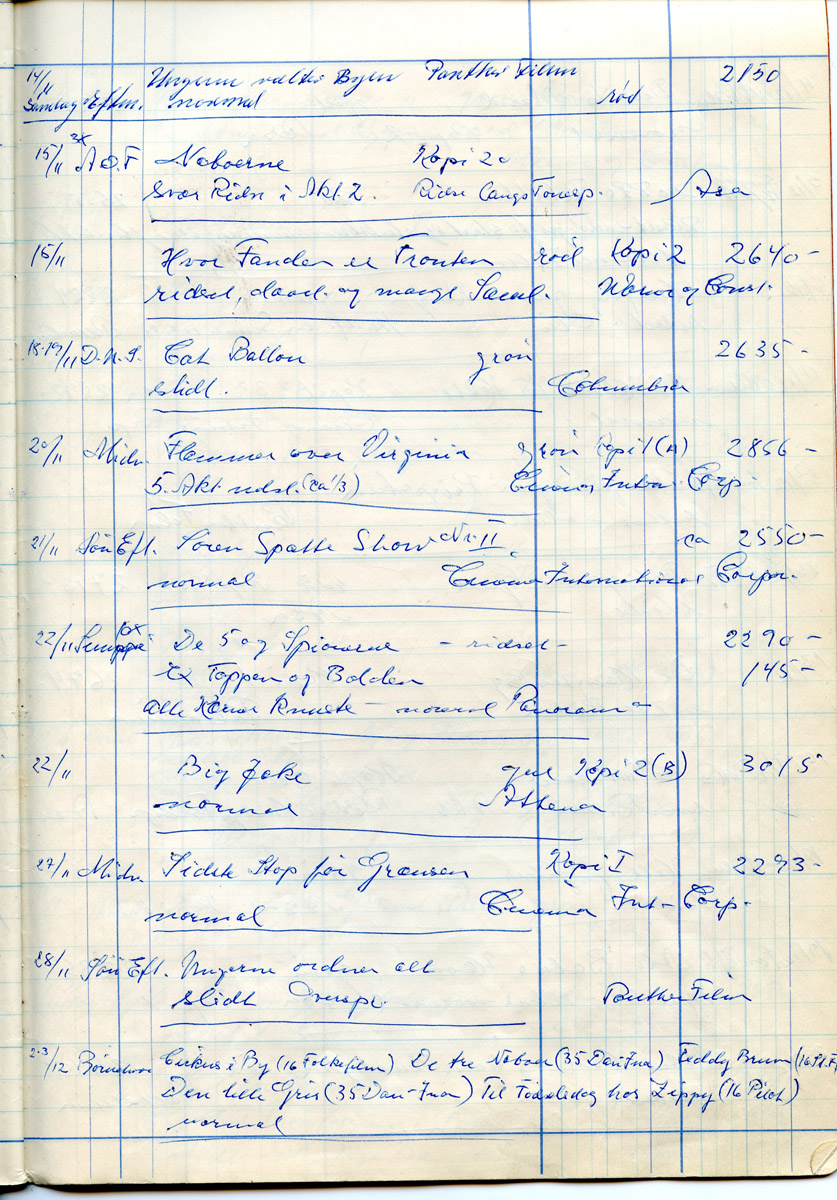 14/11 Ungerne vælter Byen Panther Film 2150
Søndag Eftm. normal rød
15/11 AOF Naboerne Kopi 2
Svær Ridse i Akt. 2. Ridse Langs Asa
15/11 Hvor Fanden er Fronten rød Kopi 2 2640-
ridset, og mange Saml. og Const.
18-19/11 Cat Ballou grøn 2635-
slidt. Columbia
20/11 Midn. Flammer over Virginia grøn Kopi 1 (A) 2856-
5. Akt. (ca 1/3) Cinema Intern. Corp.
21/11 Søn Eft. Søren Spætte Show Nr. II ca 2550-
normal Cinema International Corpor.
22/11 De 5 og Spionerne - ridset - 2290-
Ex Toppen og Bolden 145-
alle - normal Panorama -
22/11 Big Jake gul Kopi 2 (B) 3015
normal Athena
27/11 Midn. Sidste Stop før Grænsen Kopi I 2293-
normal Cinema Int- Corp.
28/11 Søn Eft. Ungerne ordner alt
slidt Panther Film
2-3/12 Cirkus i By (16 Folkefilm) De tre Naboer (35 Dan-Ina) Teddy Bruun (16
Den lille Gris (35 Dan-Ina) Til Fødselsdag hos Zippy (16 Pilot)
normal